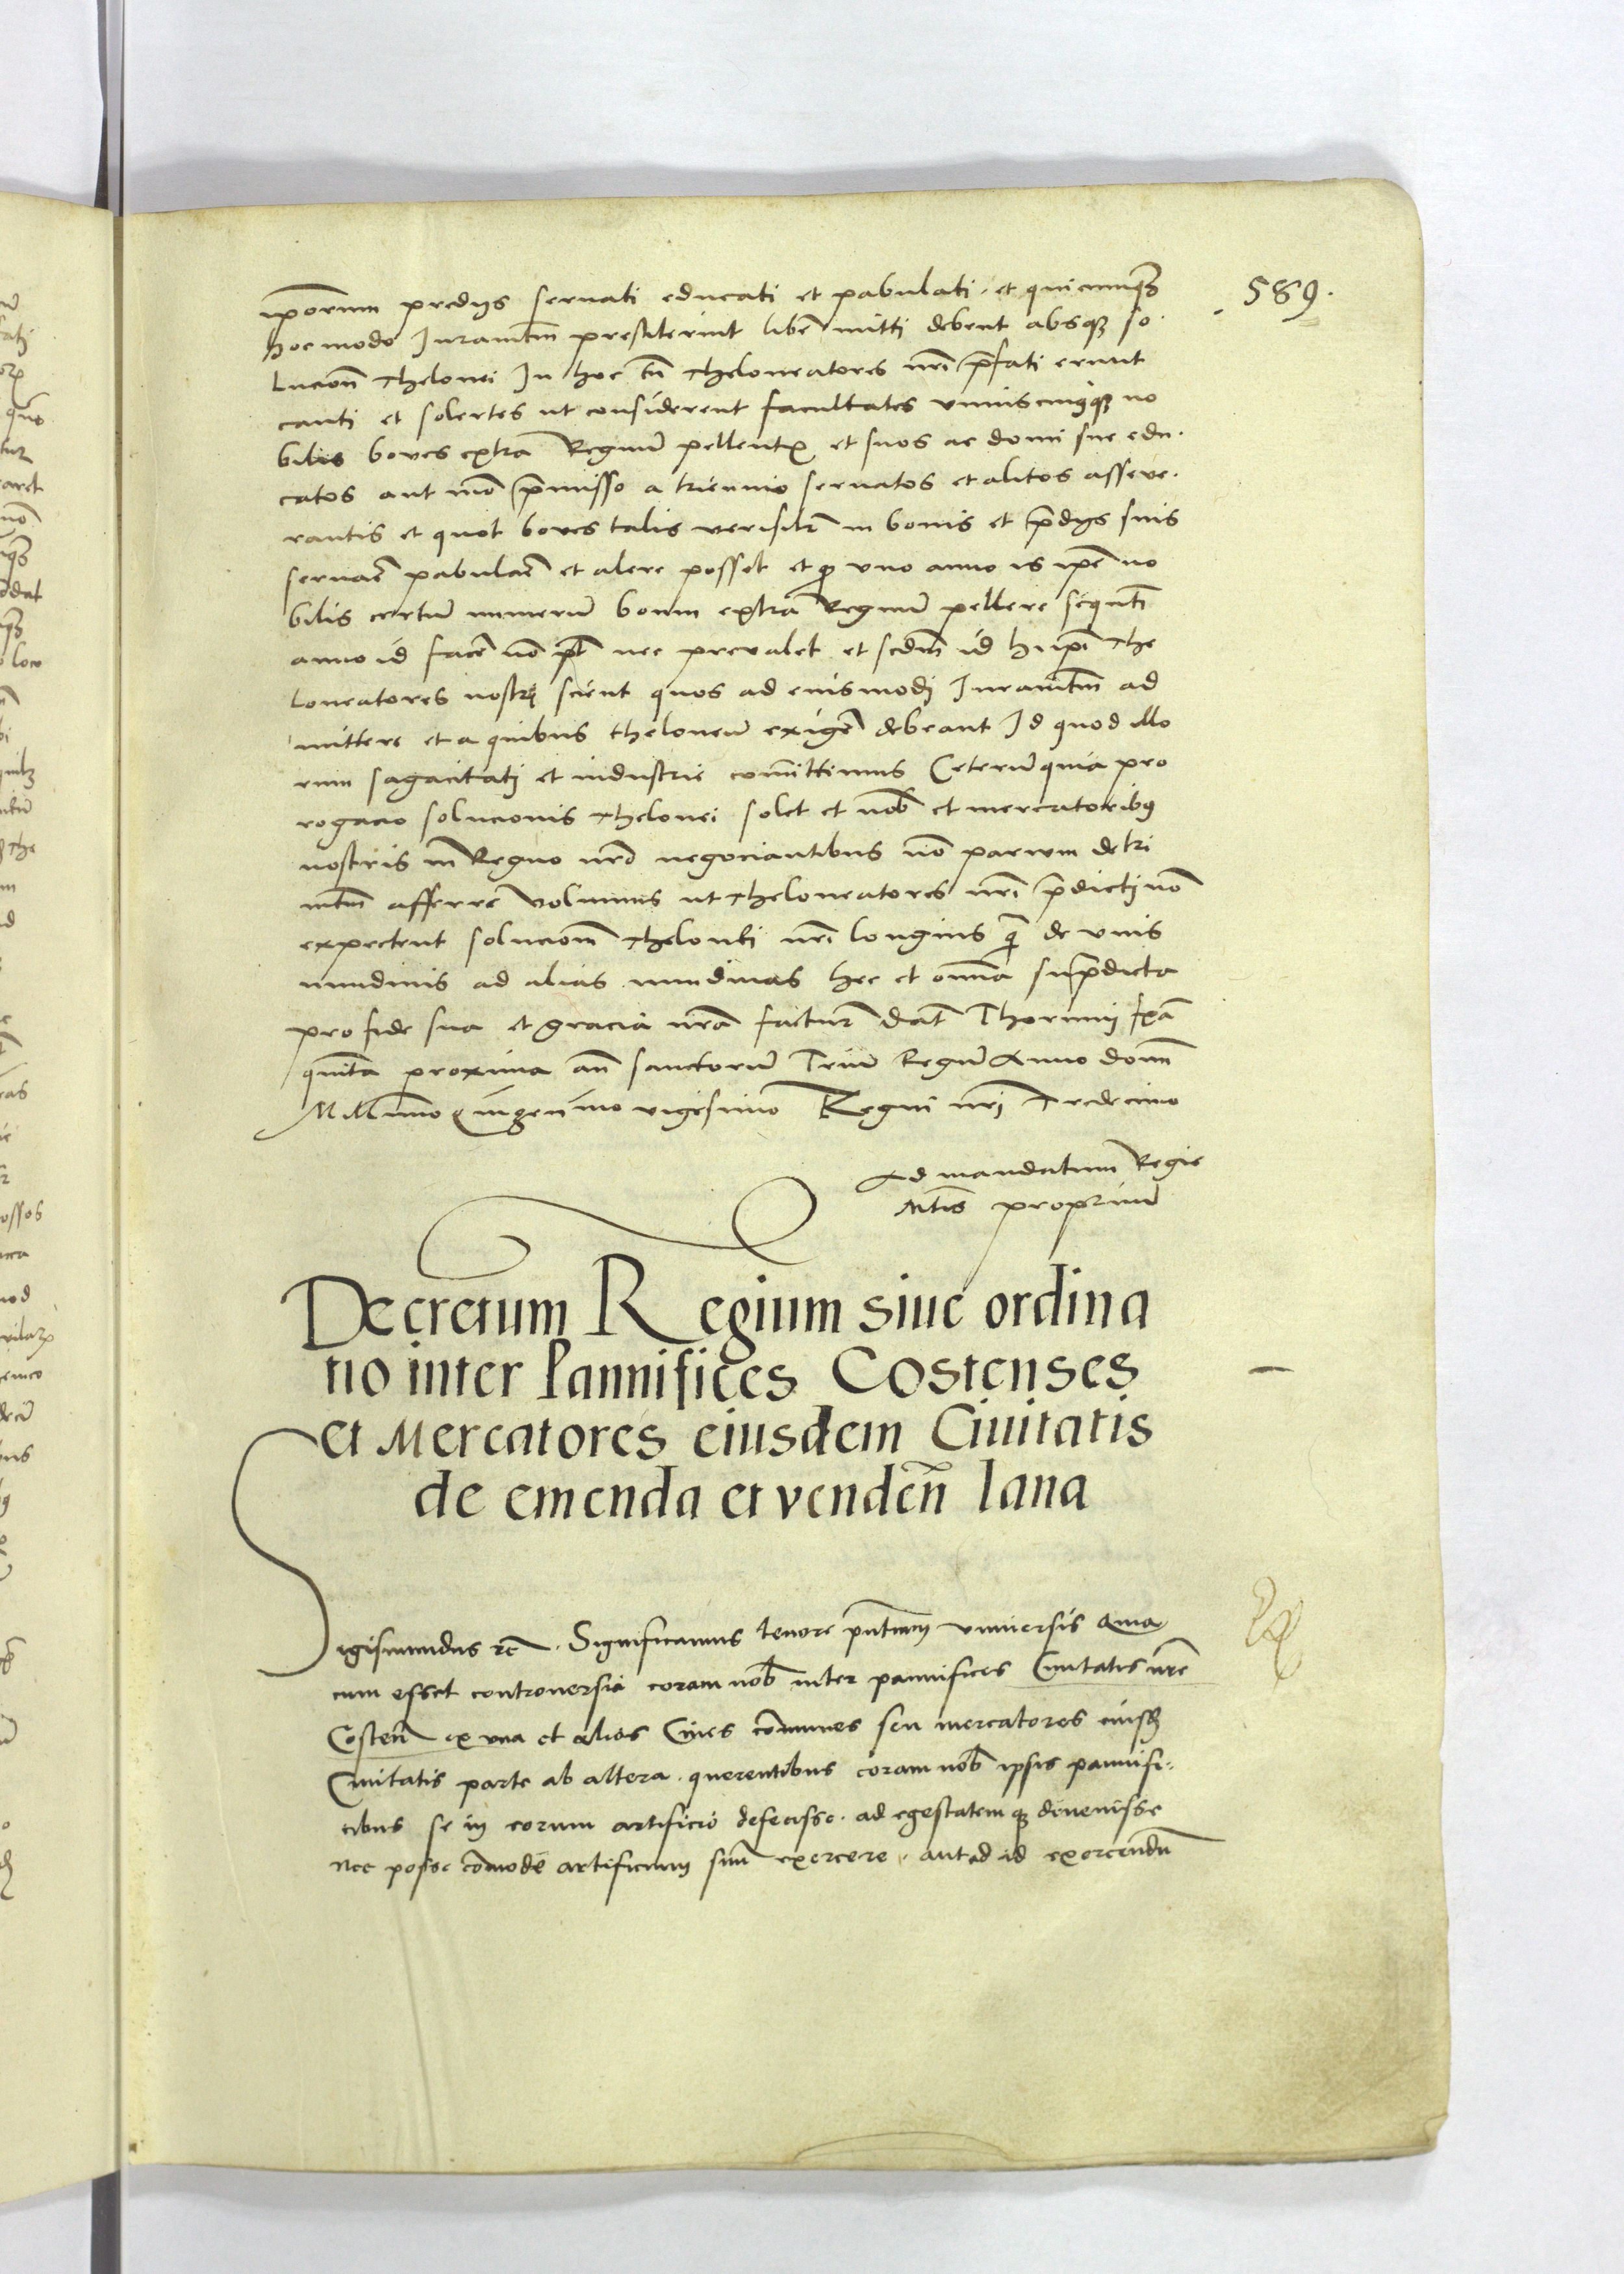 589.
ip̄orum predijs seruati educati et pabulati. et quicumqȝ
hoc modo Juramtm̄ prestiterint liber̄ mitti debent absqȝ so.
lucion̄ thelonei In hoc tn̄ theloneatores nr̄i p̄fati erunt
cauti et solertes ut considerent facultates vniuscuiusqȝ no
bilis boues extra Regnum pellentꝭ et suos ac domi sue edu.
catos aut mo͞ p̄misso a triennio seruatos et alitos asseve.
rantis et quot boues talis verisilr̄ in bonis et p̄dijs suis
seruar̄ pabular̄ et alere posset et ꝙ vno anno is ip̄e no
bilis certū numerū boum extra Regnū pellere sequn̄ti
anno id facer̄ no͞ pt̄ nec prevalet et scdm̄ id hij ip̄i the
loneatores nostri scient quos ad eiusmodi Juramtm̄ ad
mittere et a quibus theloneū exiger̄ debeant Id quod illo
rum sagacitati et industrie com̄ittimus Ceterū quia pro
rogacio solucionis thelonei solet et nob̄ et mercatoribꝰ
nostris in Regno nr̄o negociantibus no͞ parvum detri
mtm̄ afferre volumus ut theloneatores nr̄i p̄dicti no͞
expectent solucionē thelonei nr̄i longius q̄ de vnis
nundinis ad alias nundinas hec et om̄ia sup̄dicta
pro fide sua et gracia nr̄a facturi dat̄ Thorunij fer̄ia
quīta proxima an̄ sanctorū Triū Regū Anno domī
Mill̄imo Quingen̄imo vigesimo Regni nr̄i Tredecimo
Ad mandatum Regie
Mt̄is propriū
Decretum Regium siue ordina
tio inter Pannifices Costenses
et Mercatores eiusdem Ciuitatis
de emenda et venden̄ lana
Sigismundus rc̄. Significamus tenore pn̄tium vniuersis Quia
cum esset controuersia coram nob̄ inter pannifices Ciuitatis nr̄e
Costen̄ ex vna et alios Ciues com̄unes seu mercatores eiusdȝ
Ciuitatis parte ab altera. querentibus coram nob̄ ipsis pannifi:
cibus se in eorum artificio defecisse. ad egestatemqȝ deuenisse
nec posse com̄ode artificium suū exercere. aut ad id exercendū